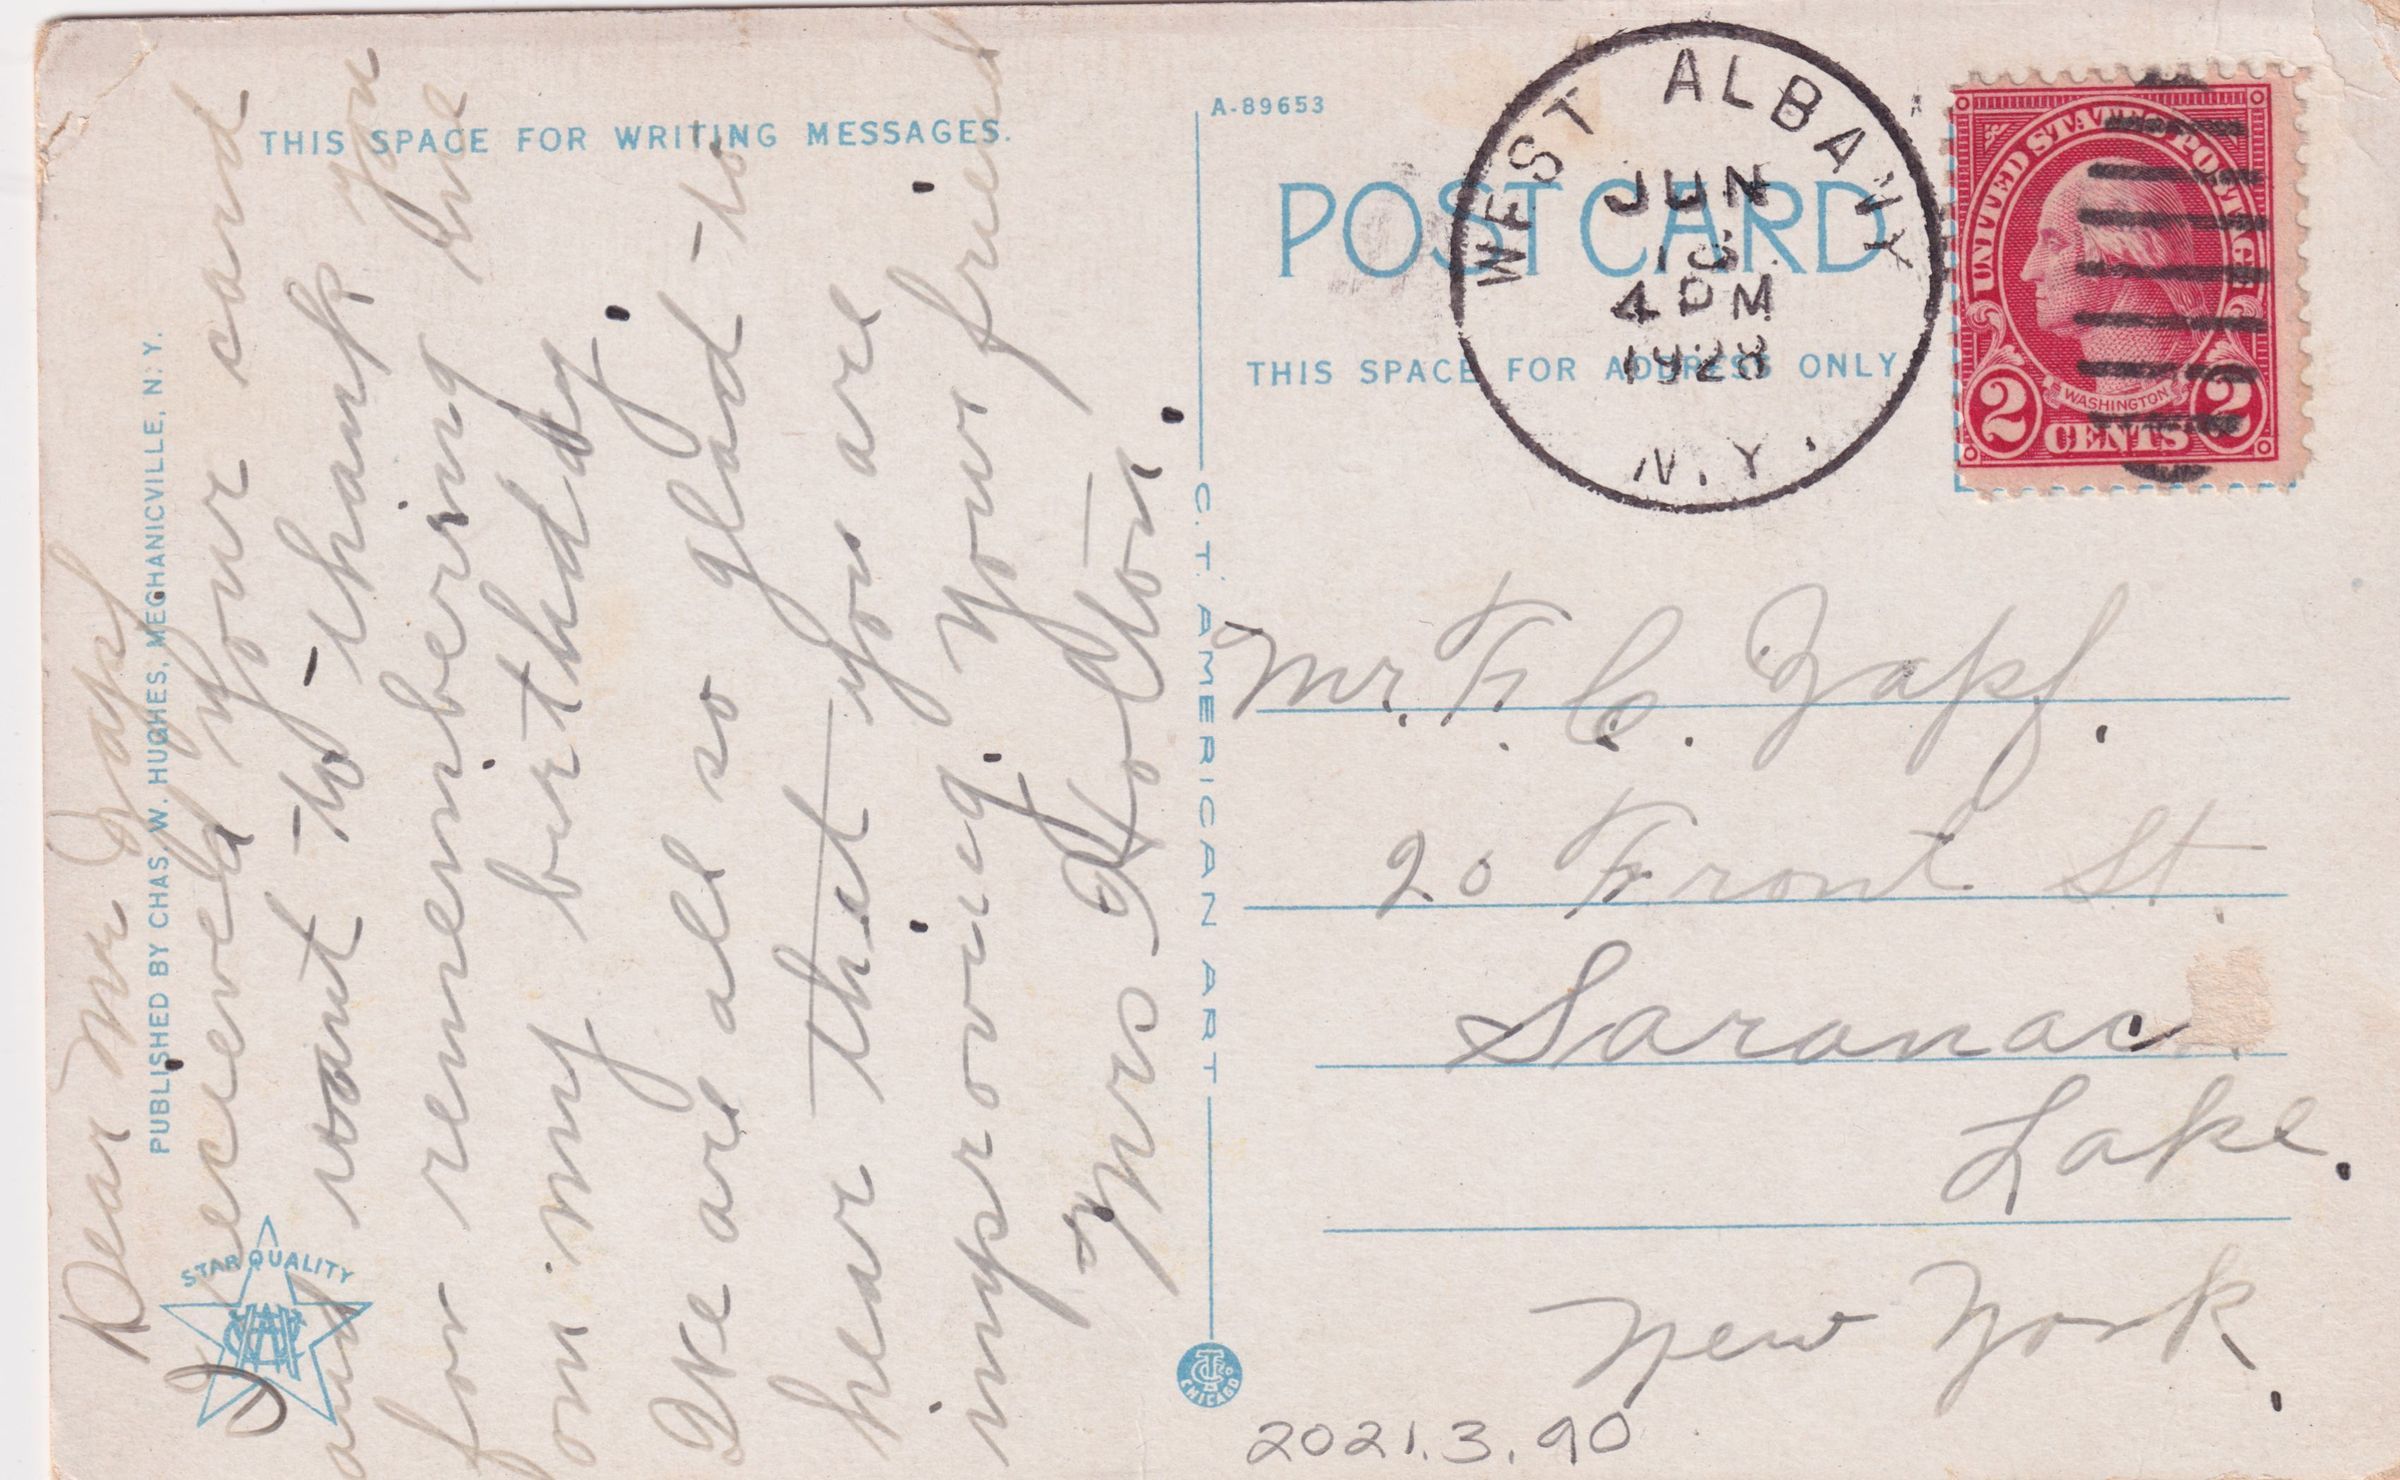 THIS SPACE FOR WRITING MESSAGES.
PUBLISHED BY CHAS. W. HUGHES, MECHANICVILLE, N. Y.
Dear Mr Zapf
I received your card
and want to thank you
for remembering me
on my birthday.
We are all so glad to
hear that you are
improving. Your friend
Mrs Holton.
STAR QUALITY
C. T. AMERICAN ART
CHICAGO
A-89653
POST CARD
THIS SPACE FOR ADDRESS ONLY
WEST ALBANY
JUN
4 PM
1928
N.Y.
UNITED STATES POSTAGE
WASHINGTON
2 CENTS 2
Mr. F. C. Zapf.
20 Front St.
Saranac
Lake.
New York.
2021.3.90